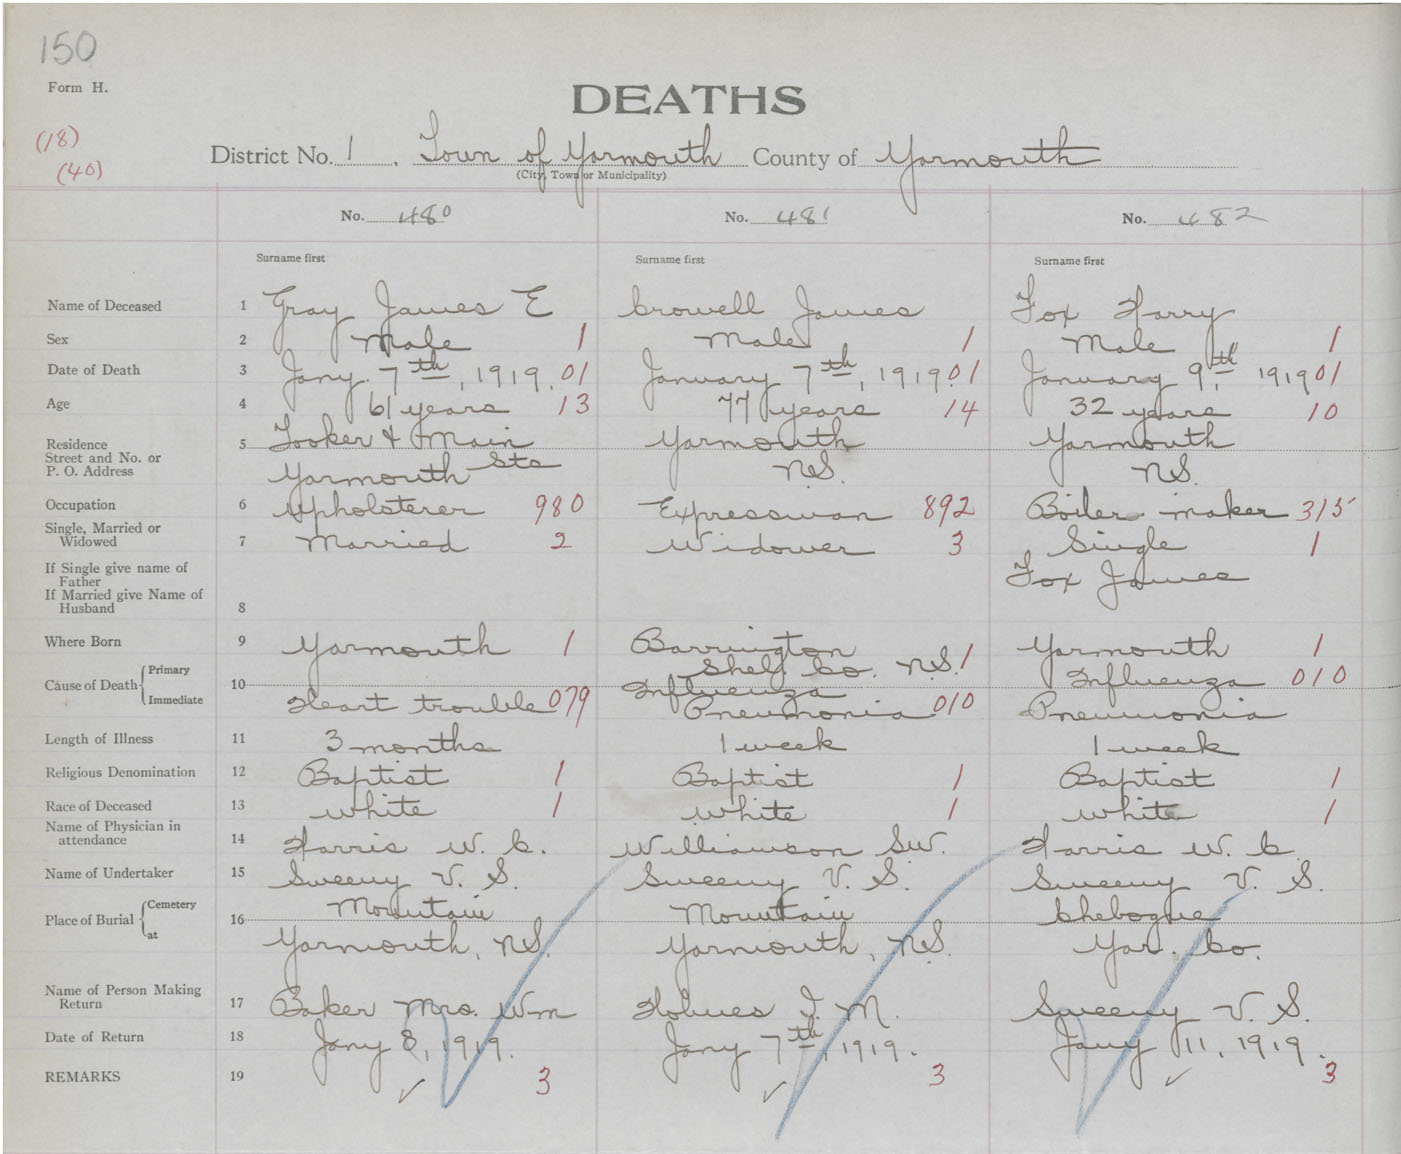 150
Form H.
DEATHS
(18)
(40)
District No. 1. Town of Yarmouth County of Yarmouth
(City, Town or Municipality)
No. 480 No. 481 No. 482
Surname first Surname first Surname first
Name of Deceased 1 Gray James E Crowell James Fox Harry
Sex 2 Male 1 Male 1 Male 1
Date of Death 3 Jany. 7th, 1919. 01 January 7th, 1919. 01 January 9th, 1919 01
Age 4 61 years 13 77 years 14 32 years 10
Residence 5 Tooker & Main Yarmouth Yarmouth
Street and No. or
P. O. Address Yarmouth Sts N.S. N.S.
Occupation 6 Upholsterer 980 Expressman 892 Boiler maker 315
Single, Married or
Widowed 7 Married 2 Widower 3 Single 1
If Single give name of
Father Fox James
If Married give Name of
Husband 8
Where Born 9 Yarmouth 1 Barrington Yarmouth 1
Shel. Co. N.S. 1
Cause of Death { Primary 10 Influenza Influenza 010
Immediate Heart trouble 079 Pneumonia 010 Pneumonia
Length of Illness 11 3 months 1 week 1 week
Religious Denomination 12 Baptist 1 Baptist 1 Baptist 1
Race of Deceased 13 white 1 white 1 white 1
Name of Physician in
attendance 14 Harris W. C. Williamson S.W. Harris W. C.
Name of Undertaker 15 Sweeny V. S. Sweeny V. S. Sweeny V. S.
Place of Burial { Cemetery 16 Mountain Mountain Chebogue
at Yarmouth, N.S. Yarmouth, N.S. Yar. Co.
Name of Person Making
Return 17 Baker Mrs. Wm Holmes J. M. Sweeny V. S.
Date of Return 18 Jany 8, 1919. Jany 7th, 1919. Jany 11, 1919.
REMARKS 19 3 3 3